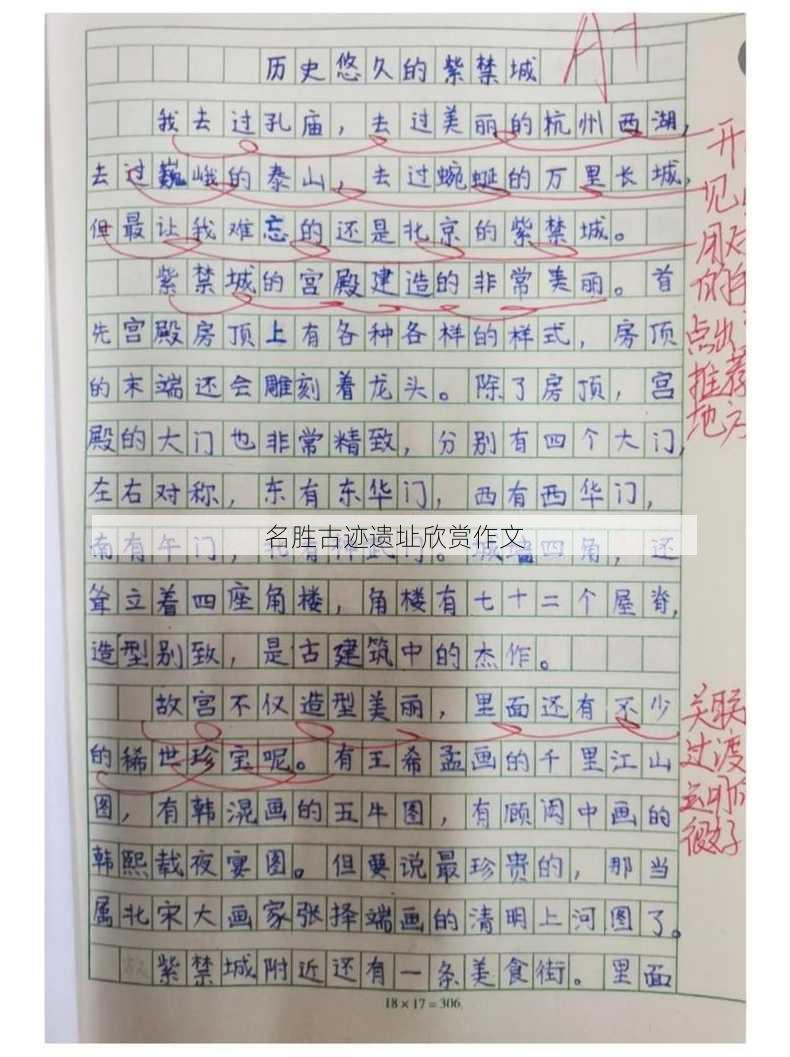 历史悠久的紫禁城
A+
我去过孔庙，去过美丽的杭州西湖，
去过巍峨的泰山，去过蜿蜒的万里长城，
但最让我难忘的还是北京的紫禁城。
紫禁城的宫殿建造的非常美丽。首
先宫殿房顶上有各种各样的样式，房顶
的末端还会雕刻着龙头。除了房顶，宫
殿的大门也非常精致，分别有四个大门，
左右对称，东有东华门，西有西华门，
南有午门，城墙四角，还
名胜古迹遗址欣赏作文
耸立着四座角楼，角楼有七十二个屋脊，
造型别致，是古建筑中的杰作。
故宫不仅造型美丽，里面还有不少
的稀世珍宝呢。有王希孟画的千里江山
图，有韩滉画的五牛图，有顾闳中画的
韩熙载夜宴图。但要说最珍贵的，那当
属北宋大画家张择端画的清明上河图了。
紫禁城附近还有一条美食街。里面
18×17=306
开
见
点出
推荐
地方
关联
过渡
运用
很好